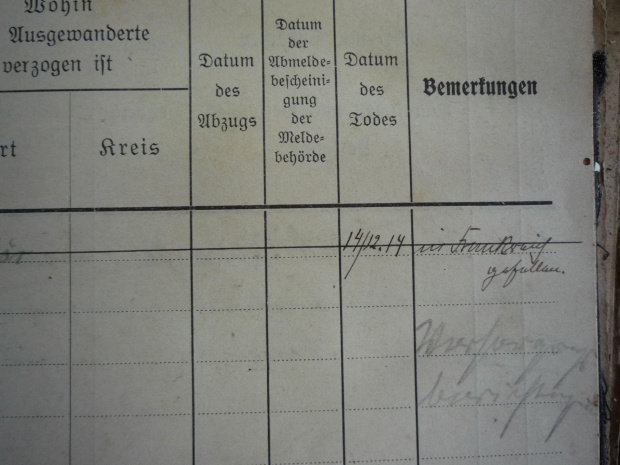 Wohin
Ausgewanderte
verzogen ist
rt
Kreis
Datum
des
Abzugs
Datum
der
Abmelde-
bescheini-
gung
der
Melde-
behörde
Datum
des
Todes
Bemerkungen
14/12.14
in Frankreich
gefallen.